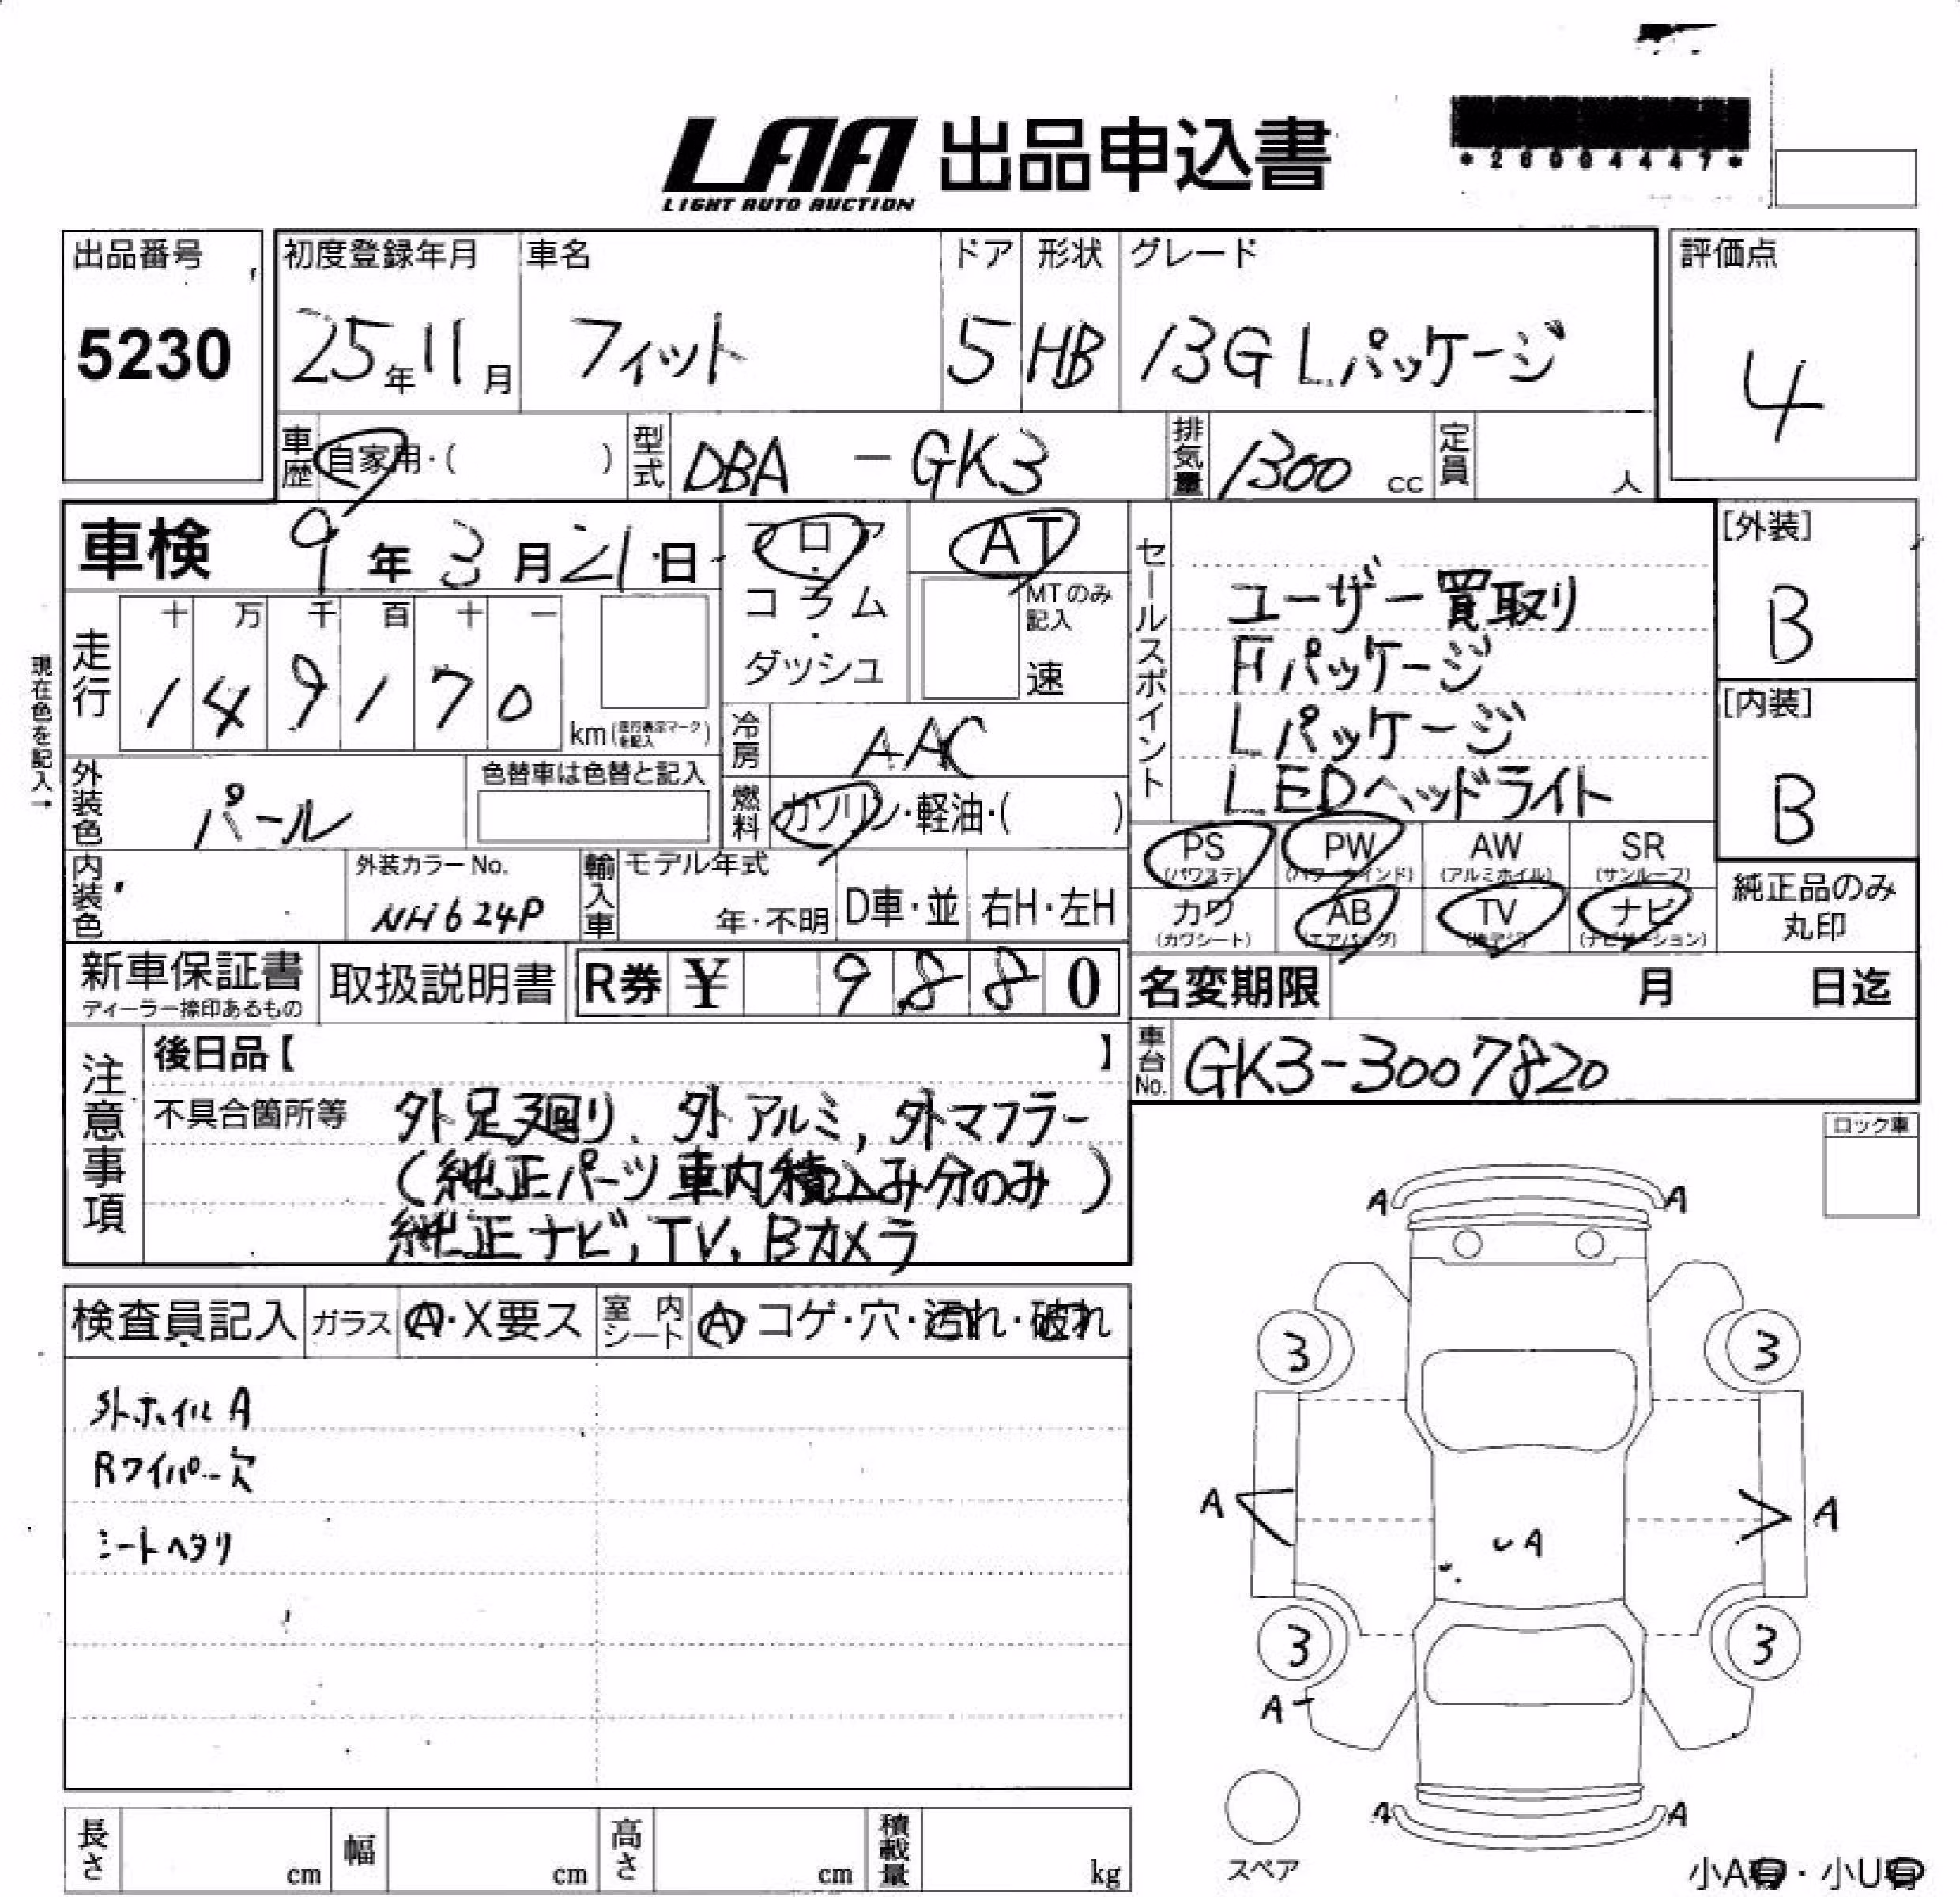 LAA 出品申込書
LIGHT AUTO AUCTION
*26004447*
出品番号
5230
初度登録年月
25年11月
車名
フィット
ドア
5
形状
HB
グレード
13G Lパッケージ
評価点
4
車歴
自家用・( )
型式
DBA - GK3
排気量
1300 cc
定員
人
車検 9年3月21日
フロア・コラム・ダッシュ
AT
MTのみ記入
速
走行
十 万 千 百 十 一
1 4 9 1 7 0
km(走行表示マークを記入)
現在色を記入→
冷房
AAC
外装色
パール
色替車は色替と記入
燃料
ガソリン・軽油・( )
内装色
外装カラーNo.
NH624P
輸入車
モデル年式
年・不明
D車・並
右H・左H
セールスポイント
ユーザー買取り
Fパッケージ
Lパッケージ
LEDヘッドライト
[外装]
B
[内装]
B
PS (パワステ)
PW (パワーウインド)
AW (アルミホイル)
SR (サンルーフ)
カワ (カワシート)
AB (エアバッグ)
TV (地デジ)
ナビ (ナビゲーション)
純正品のみ
丸印
新車保証書
ディーラー捺印あるもの
取扱説明書
R券 ¥ 9,880
名変期限 月 日迄
車台No.
GK3-3007820
注意事項
後日品【 】
不具合箇所等 外足廻り、外アルミ, 外マフラー
(純正パーツ車内積込み分のみ)
純正ナビ, TV, Bカメラ
ロック車
検査員記入
ガラス
A・X要ス
室内シート
A コゲ・穴・汚れ・破れ
外ホイルA
Rワイパー穴
シートヘタリ
A A
3 3
A A
A
3 3
A
A A
スペア
小A有・小U有
長さ cm
幅 cm
高さ cm
積載量 kg